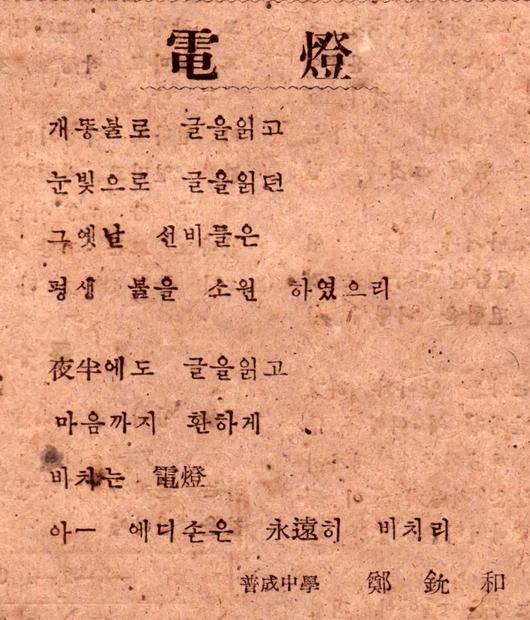 電燈
개똥불로 글을읽고
눈빛으로 글을읽던
그옛날 선비들은
평생 불을 소원 하였으리
夜半에도 글을읽고
마음까지 환하게
비치는 電燈
아ー 에디손은 永遠히 비치리
善成中學 鄭 銃 和